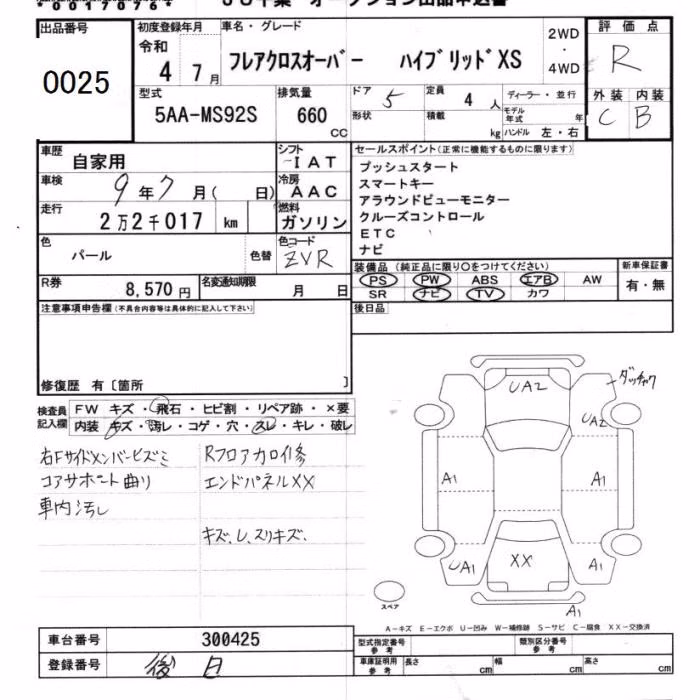 出品番号
0025
初度登録年月
令和
4 7月
車名・グレード
フレアクロスオーバー ハイブリッドXS
2WD
・
4WD
評価点
R
外装 内装
C B
型式
5AA-MS92S
排気量
660
CC
ドア
5
定員
4 人
形状
積載
kg
ディーラー・並行
モデル年式 年
ハンドル 左・右
車歴
自家用
シフト
IAT
車検
9年7月( 日)
冷房
AAC
走行
2万2千017 km
燃料
ガソリン
色
パール
色替
色コード
ZVR
R券
8,570円
名変通知期限
月 日
セールスポイント(正常に機能するものに限ります)
プッシュスタート
スマートキー
アラウンドビューモニター
クルーズコントロール
ETC
ナビ
装備品 (純正品に限り○をつけてください)
PS PW ABS エアB AW
SR ナビ TV カワ
新車保証書
有・無
後日品
注意事項申告欄(不具合等は具体的に記入して下さい)
修復歴 有〔箇所 〕
検査員記入欄
FW キズ・飛石・ヒビ割・リペア跡・×要
内装 キズ・汚レ・コゲ・穴・スレ・キレ・破レ
右Fサイドメンバーヒズミ
コアサポート曲リ
車内汚レ
Rフロアカロイ修
エンドパネルXX
キズ、U、スリキズ、
UA2
ダッチャク
UA2
A1
A1
UA1
XX
A1
A1
スペア
A-キズ E-エクボ U-凹み W-補修跡 S-サビ C-腐食 XX-交換済
車台番号
300425
登録番号
後日
型式指定番号
参考
類別区分番号
参考
車庫証明用
参考
長さ cm
幅 cm
高さ cm